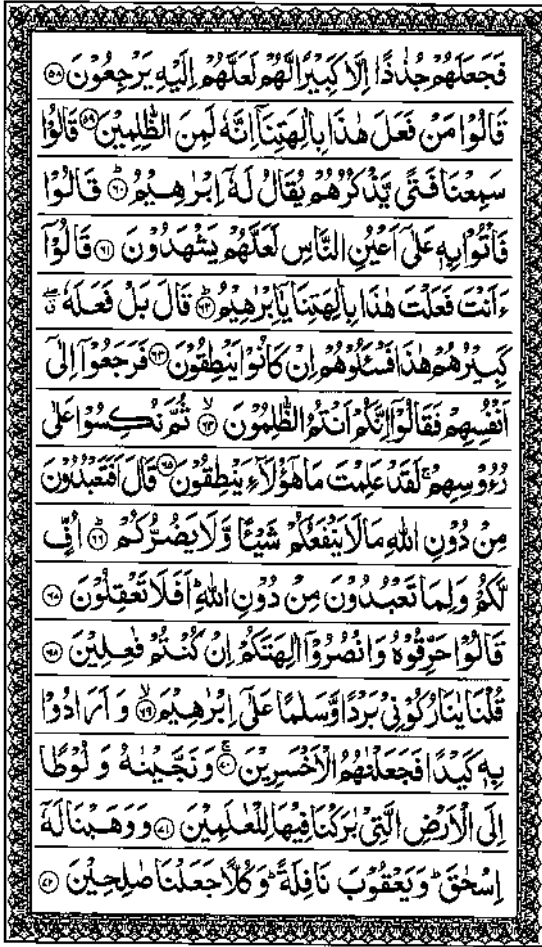 فَجَعَلَهُمْ جُذٰذًا اِلَّا كَبِيْرًا لَّهُمْ لَعَلَّهُمْ اِلَيْهِ يَرْجِعُوْنَ ﴿۵۸﴾
قَالُوْا مَنْ فَعَلَ هٰذَا بِاٰلِهَتِنَاۤ اِنَّهٗ لَمِنَ الظّٰلِمِيْنَ ﴿۵۹﴾ قَالُوْا
سَمِعْنَا فَتًى يَّذْكُرُهُمْ يُقَالُ لَهٗۤ اِبْرٰهِيْمُ ؕ﴿۶۰﴾ قَالُوْا
فَاْتُوْا بِهٖ عَلٰۤى اَعْيُنِ النَّاسِ لَعَلَّهُمْ يَشْهَدُوْنَ ﴿۶۱﴾ قَالُوْۤا
ءَاَنْتَ فَعَلْتَ هٰذَا بِاٰلِهَتِنَا يٰۤاِبْرٰهِيْمُ ؕ﴿۶۲﴾ قَالَ بَلْ فَعَلَهٗ ۖۗ
كَبِيْرُهُمْ هٰذَا فَسْـَٔلُوْهُمْ اِنْ كَانُوْا يَنْطِقُوْنَ ﴿۶۳﴾ فَرَجَعُوْۤا اِلٰۤى
اَنْفُسِهِمْ فَقَالُوْۤا اِنَّكُمْ اَنْتُمُ الظّٰلِمُوْنَ ۙ﴿۶۴﴾ ثُمَّ نُكِسُوْا عَلٰى
رُءُوْسِهِمْ ۚ لَقَدْ عَلِمْتَ مَا هٰۤؤُلَآءِ يَنْطِقُوْنَ ﴿۶۵﴾ قَالَ اَفَتَعْبُدُوْنَ
مِنْ دُوْنِ اللّٰهِ مَا لَا يَنْفَعُكُمْ شَيْـًٔا وَّلَا يَضُرُّكُمْ ؕ﴿۶۶﴾ اُفٍّ
لَّكُمْ وَلِمَا تَعْبُدُوْنَ مِنْ دُوْنِ اللّٰهِ ؕ اَفَلَا تَعْقِلُوْنَ ﴿۶۷﴾
قَالُوْا حَرِّقُوْهُ وَانْصُرُوْۤا اٰلِهَتَكُمْ اِنْ كُنْتُمْ فٰعِلِيْنَ ﴿۶۸﴾
قُلْنَا يٰنَارُ كُوْنِيْ بَرْدًا وَّسَلٰمًا عَلٰۤى اِبْرٰهِيْمَ ۙ﴿۶۹﴾ وَاَرَادُوْا
بِهٖ كَيْدًا فَجَعَلْنٰهُمُ الْاَخْسَرِيْنَ ۚ﴿۷۰﴾ وَنَجَّيْنٰهُ وَلُوْطًا
اِلَى الْاَرْضِ الَّتِيْ بٰرَكْنَا فِيْهَا لِلْعٰلَمِيْنَ ﴿۷۱﴾ وَوَهَبْنَا لَهٗۤ
اِسْحٰقَ ؕ وَيَعْقُوْبَ نَافِلَةً ؕ وَكُلًّا جَعَلْنَا صٰلِحِيْنَ ﴿۷۲﴾